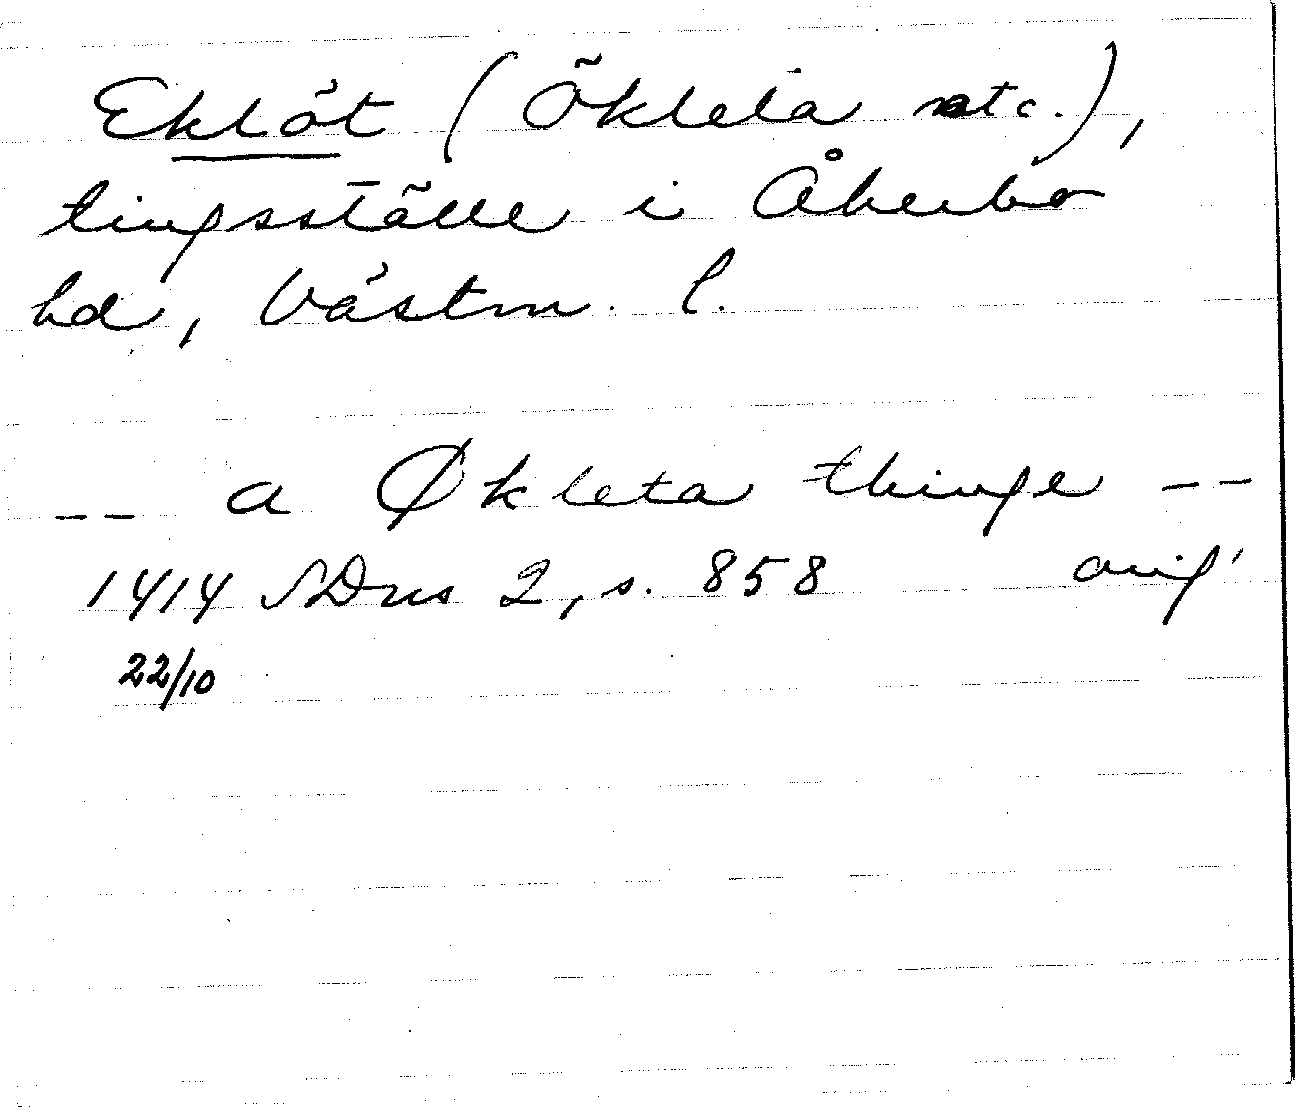 Eklöt (Ökleta etc.),
tingsställe i Åkerbo
hd, Västm. l.
-- a Økleta thinge --
1414 SDns 2, s. 858 orig.
22/10